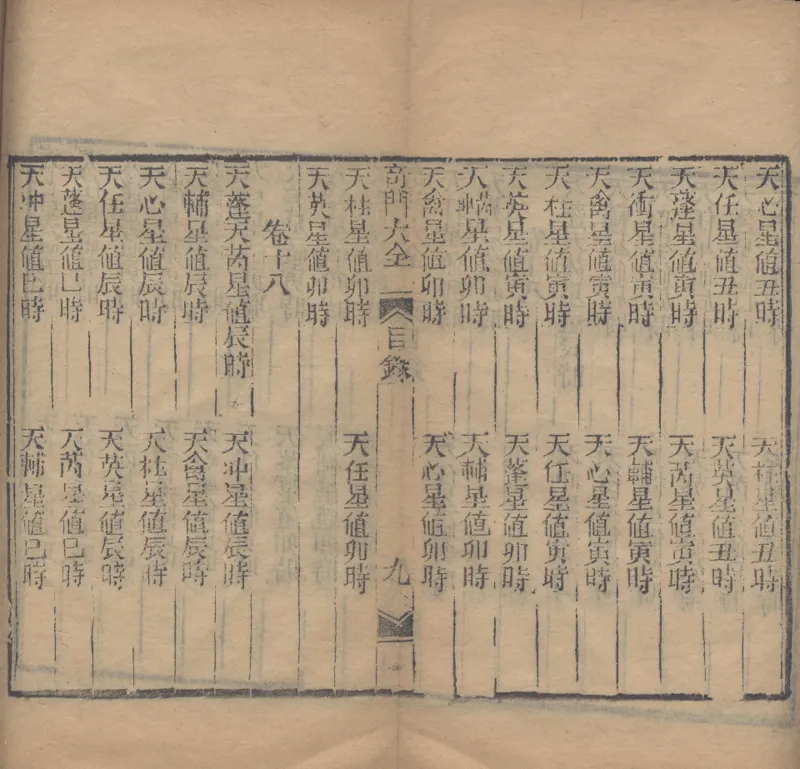 天心星値丑時
天柱星値丑時
天任星値丑時
天英星値丑時
天蓬星値寅時
天芮星値寅時
天衝星値寅時
天輔星値寅時
天禽星値寅時
天心星値寅時
天柱星値寅時
天任星値寅時
天英星値寅時
天蓬星値卯時
天輔星値卯時
天輔星値卯時
天禽星値卯時
天心星値卯時
奇門大全
目錄
九
天柱星値卯時
天任星値卯時
天英星値卯時
卷十八
天蓬天芮星値辰時
天冲星値辰時
天輔星値辰時
天禽星値辰時
天心星値辰時
天柱星値辰時
天任星値辰時
天英星値辰時
天蓬星値巳時
天芮星値巳時
天冲星値巳時
天輔星値巳時